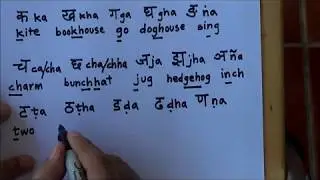 क ka ख kha ग ga घ gha ङ ṅa
kite bookhouse go doghouse sing
च ca/cha छ cha/chha ज ja झ jha ञ ña
charm bunchhat jug hedgehog inch
ट ṭa ठ ṭha ड ḍa ढ ḍha ण ṇa
two